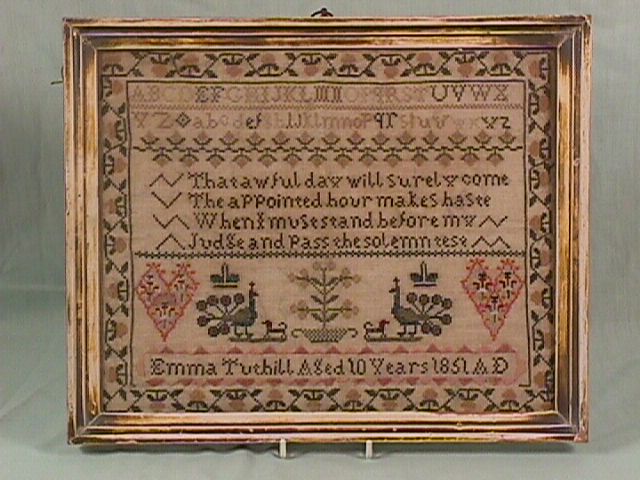 ABCDEFGHIJKLMNOPQRSTUVWX
YZabcdefghIJklmnoPqrstuvwxyz
That awful day will surely come
The appointed hour makes haste
When I must stand before my
Judge and Pass the solemn test
Emma Tuthill Aged 10 Years 1851 AD